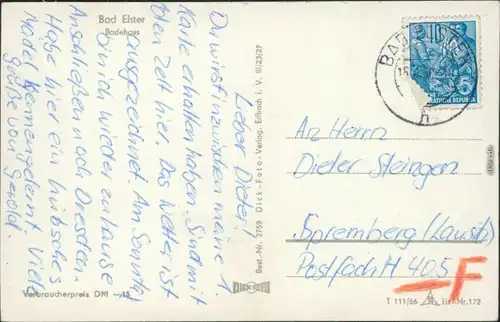 Bad Elster
Badehaus
Lieber Dieter!
Du wirst inzwischen meine 1.
Karte erhalten haben. Sind mit
der Zeit hier. Das Wetter ist
ausgezeichnet. Am Sonntag
bin ich wieder zuhause
Anschließen noch Dresden.
Habe hier ein hübsches
Mädel kennengelernt. Viele
Grüße von Gerold.
Verbraucherpreis DM -,15
Best.-Nr. 2759 Dick-Foto-Verlag, Erlbach i. V. III/23/27
BAD
10
5
REPUBLIK
An Herrn
Dieter Steingen
Spremberg (Lausitz)
Postfach H 405
F
T 111/56
Liz.-Nr. 172